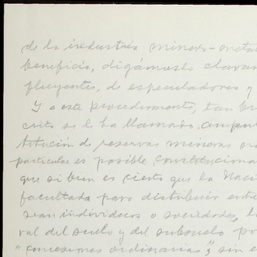 de la industria minero-meta
beneficio, digámoslo claram
fluyentes, de especuladores y
Y a este procedimiento, tan
se le ha llamado
titución de reservas mineras
particulares es posible constitucional
que si bien es cierto que la Naci
facultada para distribuir entre
sean individuos o sociedades, la
val del suelo y del subsuelo po
"concesiones ordinarias", sin e